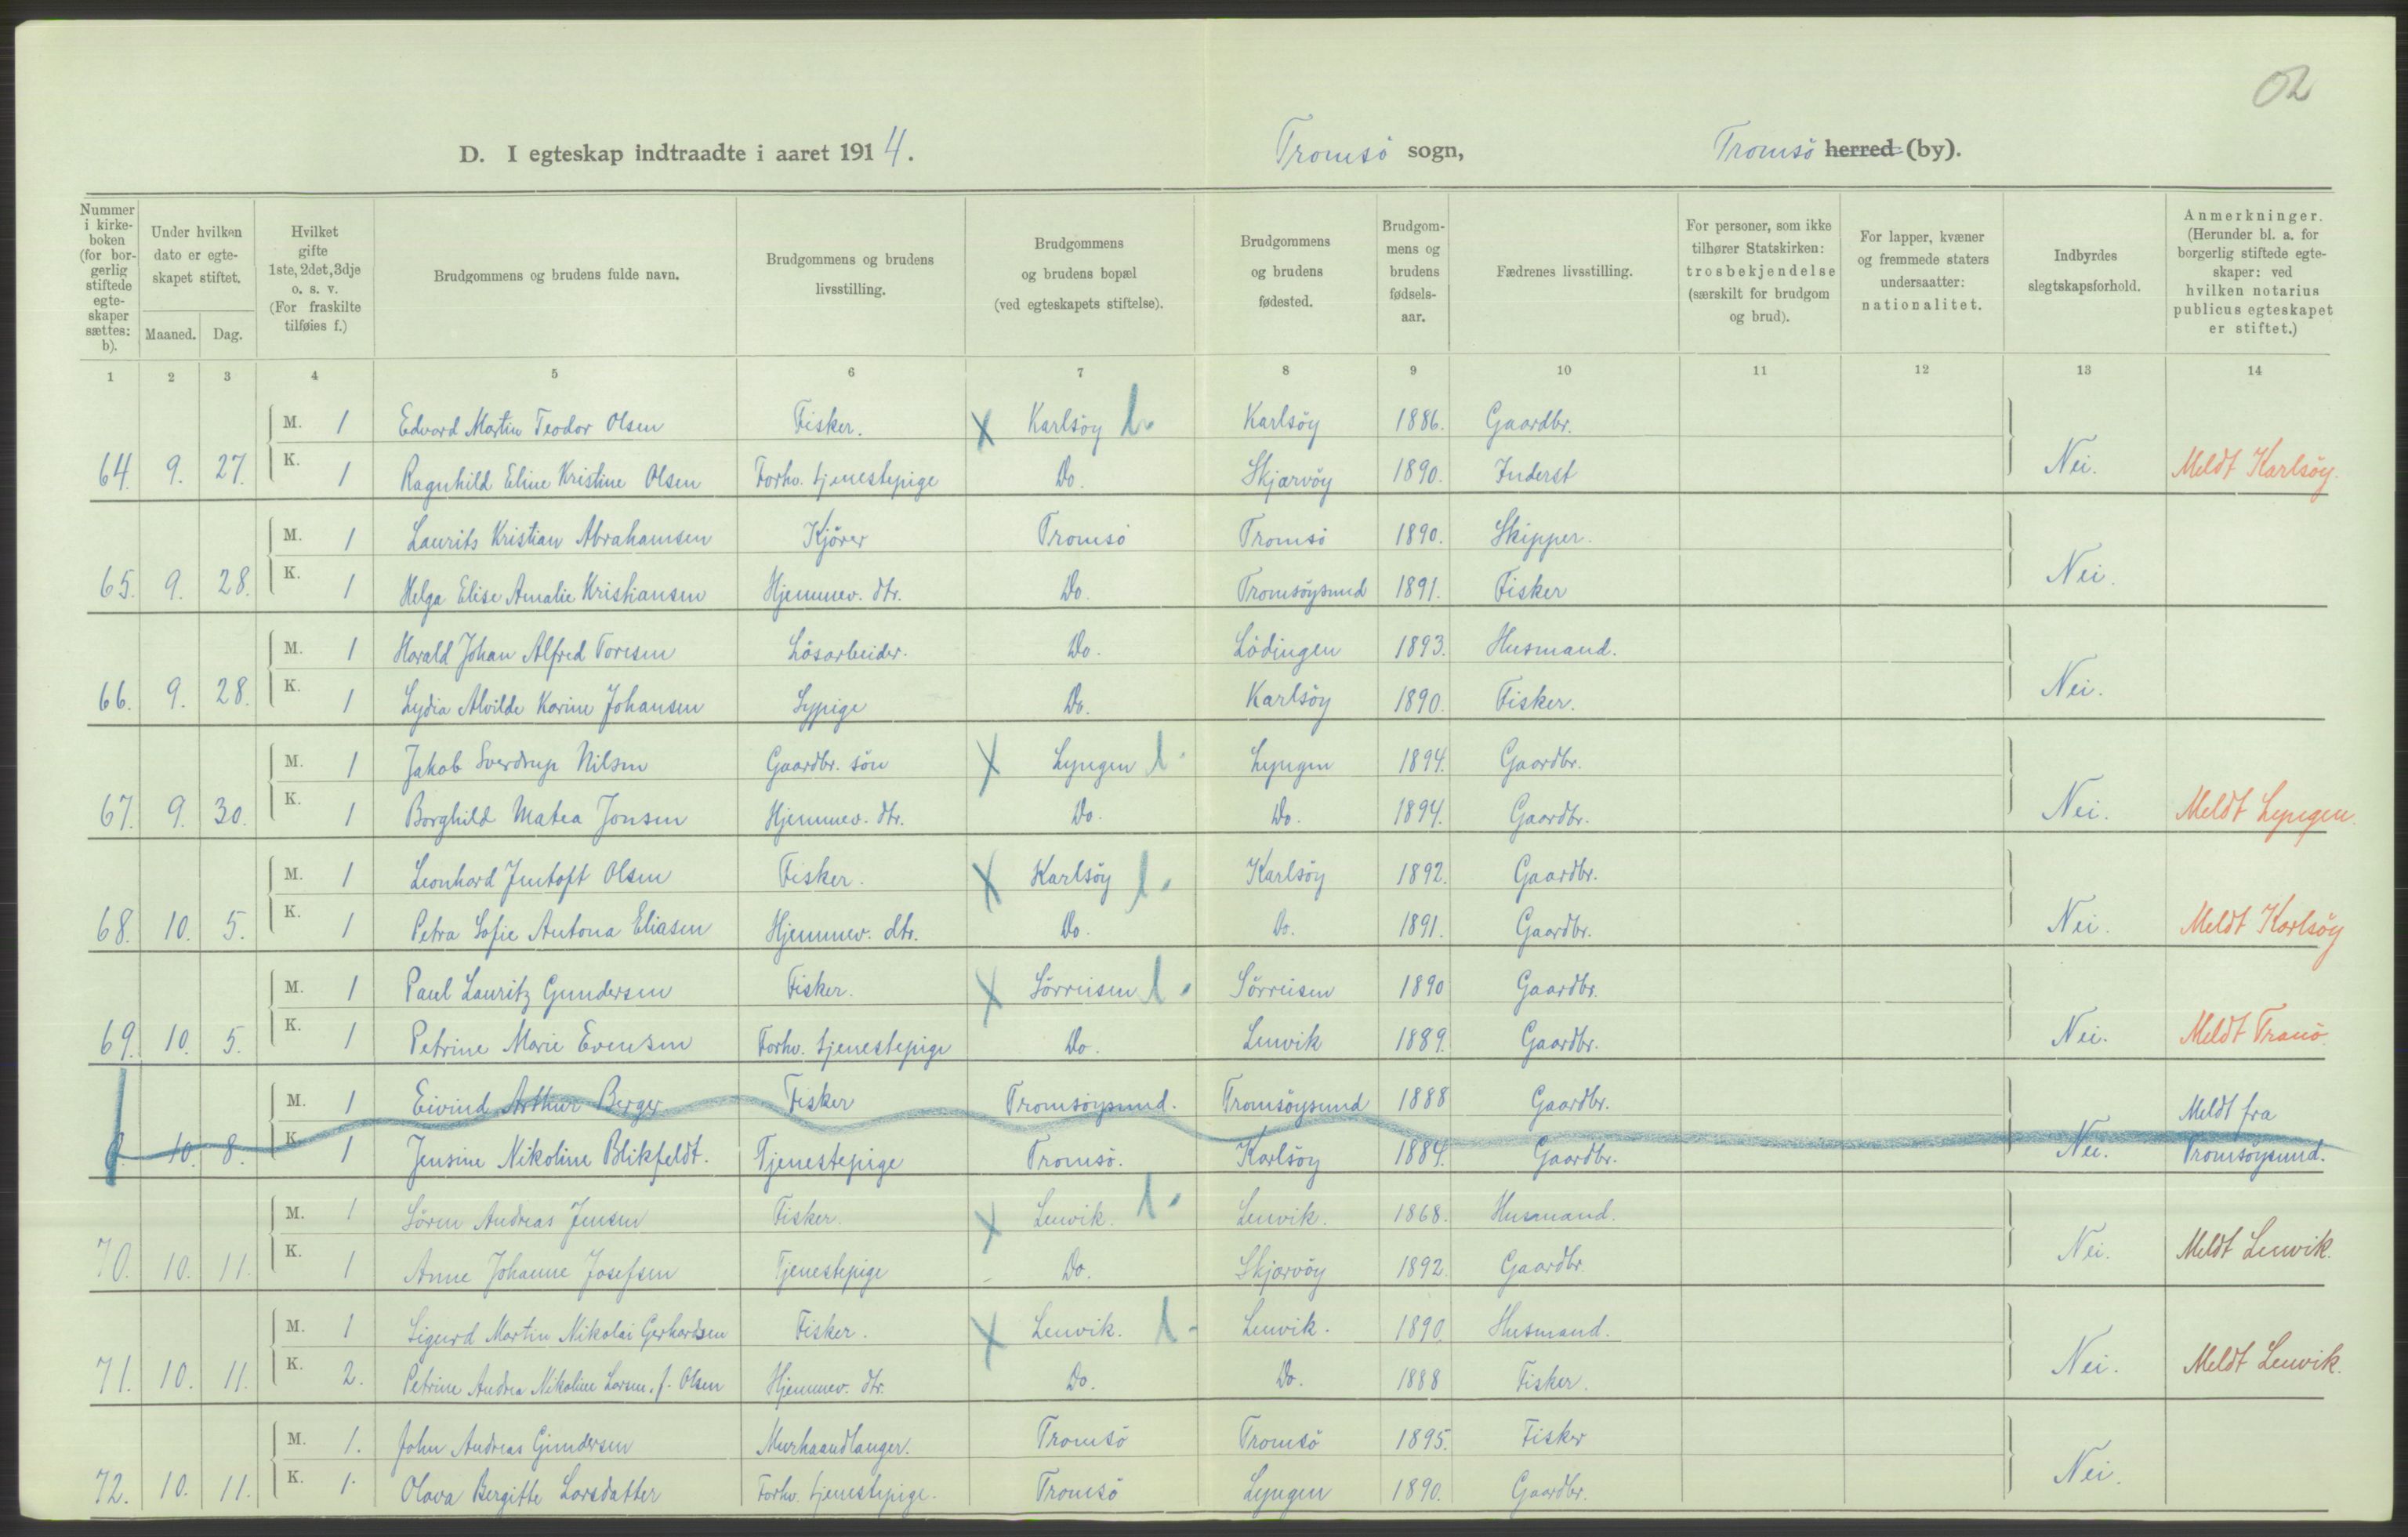 02
D. I egteskap indtraadte i aaret 1914. Tromsö sogn, Tromsö herred (by).
Nummer i kirkeboken (for borgerlig stiftede egteskaper sættes: b).
Under hvilken dato er egteskapet stiftet.
Maaned. Dag.
Hvilket gifte 1ste, 2det, 3dje o. s. v. (For fraskilte tilføies f.)
Brudgommens og brudens fulde navn.
Brudgommens og brudens livsstilling.
Brudgommens og brudens bopæl (ved egteskapets stiftelse).
Brudgommens og brudens fødested.
Brudgommens og brudens fødselsaar.
Fædrenes livsstilling.
For personer, som ikke tilhører Statskirken: trosbekjendelse (særskilt for brudgom og brud).
For lapper, kvæner og fremmede staters undersaatter: nationalitet.
Indbyrdes slegtskapsforhold.
Anmerkninger. (Herunder bl. a. for borgerlig stiftede egteskaper: ved hvilken notarius publicus egteskapet er stiftet.)
1 2 3 4 5 6 7 8 9 10 11 12 13 14
M. 1 Edvard Martin Teodor Olsen Fisker. X Karlsöy Karlsöy 1886. Gaardbr.
64. 9. 27. K. 1 Ragnhild Eline Kristine Olsen Forhv. tjenestepige Do. Skjærvöy 1890. Inderst Nei. Meldt Karlsöy.
M. 1 Laurits Kristian Abrahamsen Kjörer Tromsö Tromsö 1890. Skipper.
65. 9. 28. K. 1 Helga Elise Amalie Kristiansen Hjemmev. dtr. Do. Tromsöysund 1891. Fisker Nei.
M. 1 Harald Johan Alfred Toresen Lösarbeider. Do. Lödingen 1893. Husmand.
66. 9. 28. K. 1 Lydia Alvilde Karine Johansen Sypige Do. Karlsöy 1890. Fisker. Nei.
M. 1 Jakob Sverdrup Nilsen Gaardbr. sön X Lyngen Lyngen 1894. Gaardbr.
67. 9. 30. K. 1 Borghild Matea Jonsen Hjemmev. dtr. Do. Do. 1894. Gaardbr. Nei. Meldt Lyngen.
M. 1 Leonhard Jentoft Olsen Fisker. X Karlsöy Karlsöy 1892. Gaardbr.
68. 10. 5. K. 1 Petra Sofie Antona Eliasen Hjemmev. dtr. Do. Do. 1891. Gaardbr. Nei. Meldt Karlsöy
M. 1 Paul Lauritz Gundersen Fisker. X Sörreisen Sörreisen 1890 Gaardbr.
69. 10. 5. K. 1 Petrine Marie Evensen Forhv. tjenestepige Do. Lenvik 1889. Gaardbr. Nei. Meldt Tranö.
M. 1 Eivind Arthur Berger Fisker Tromsöysund. Tromsöysund 1888 Gaardbr. Meldt fra
10. 8. K. 1 Jensine Nikoline Blikfeldt. Tjenestepige Tromsö. Karlsöy 1884. Gaardbr. Nei. Tromsöysund.
M. 1 Sören Andreas Jensen Fisker. X Lenvik. Lenvik. 1868. Husmand.
70. 10. 11. K. 1 Anne Johanne Josefsen Tjenestepige Do. Skjærvöy 1892. Gaardbr. Nei. Meldt Lenvik.
M. 1 Sigurd Martin Nikolai Gerhardsen Fisker. X Lenvik. Lenvik. 1890. Husmand.
71. 10. 11. K. 2. Petrine Andrea Nikoline Larsen, f. Olsen Hjemmev. dtr. Do. Do. 1888 Fisker. Nei. Meldt Lenvik.
M. 1. John Andreas Gundersen Murhaandlanger. Tromsö Tromsö 1895. Fisker
72. 10. 11. K. 1. Olava Bergitte Larsdatter Forhv. tjenestepige. Tromsö Lyngen 1890. Gaardbr. Nei.